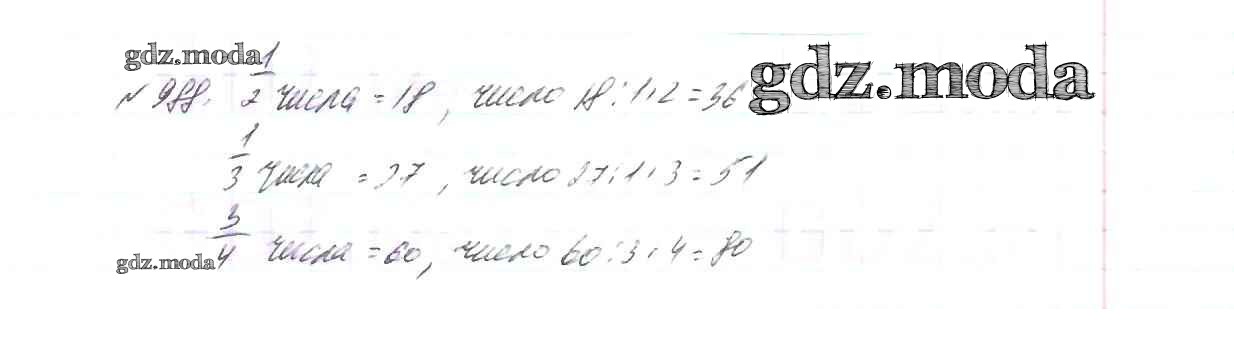 gdz.moda
gdz.moda
№ 988. 1/2 числа = 18, число 18:1·2=36
1/3 числа = 27, число 27:1·3=51
3/4 числа = 60, число 60:3·4=80
gdz.moda